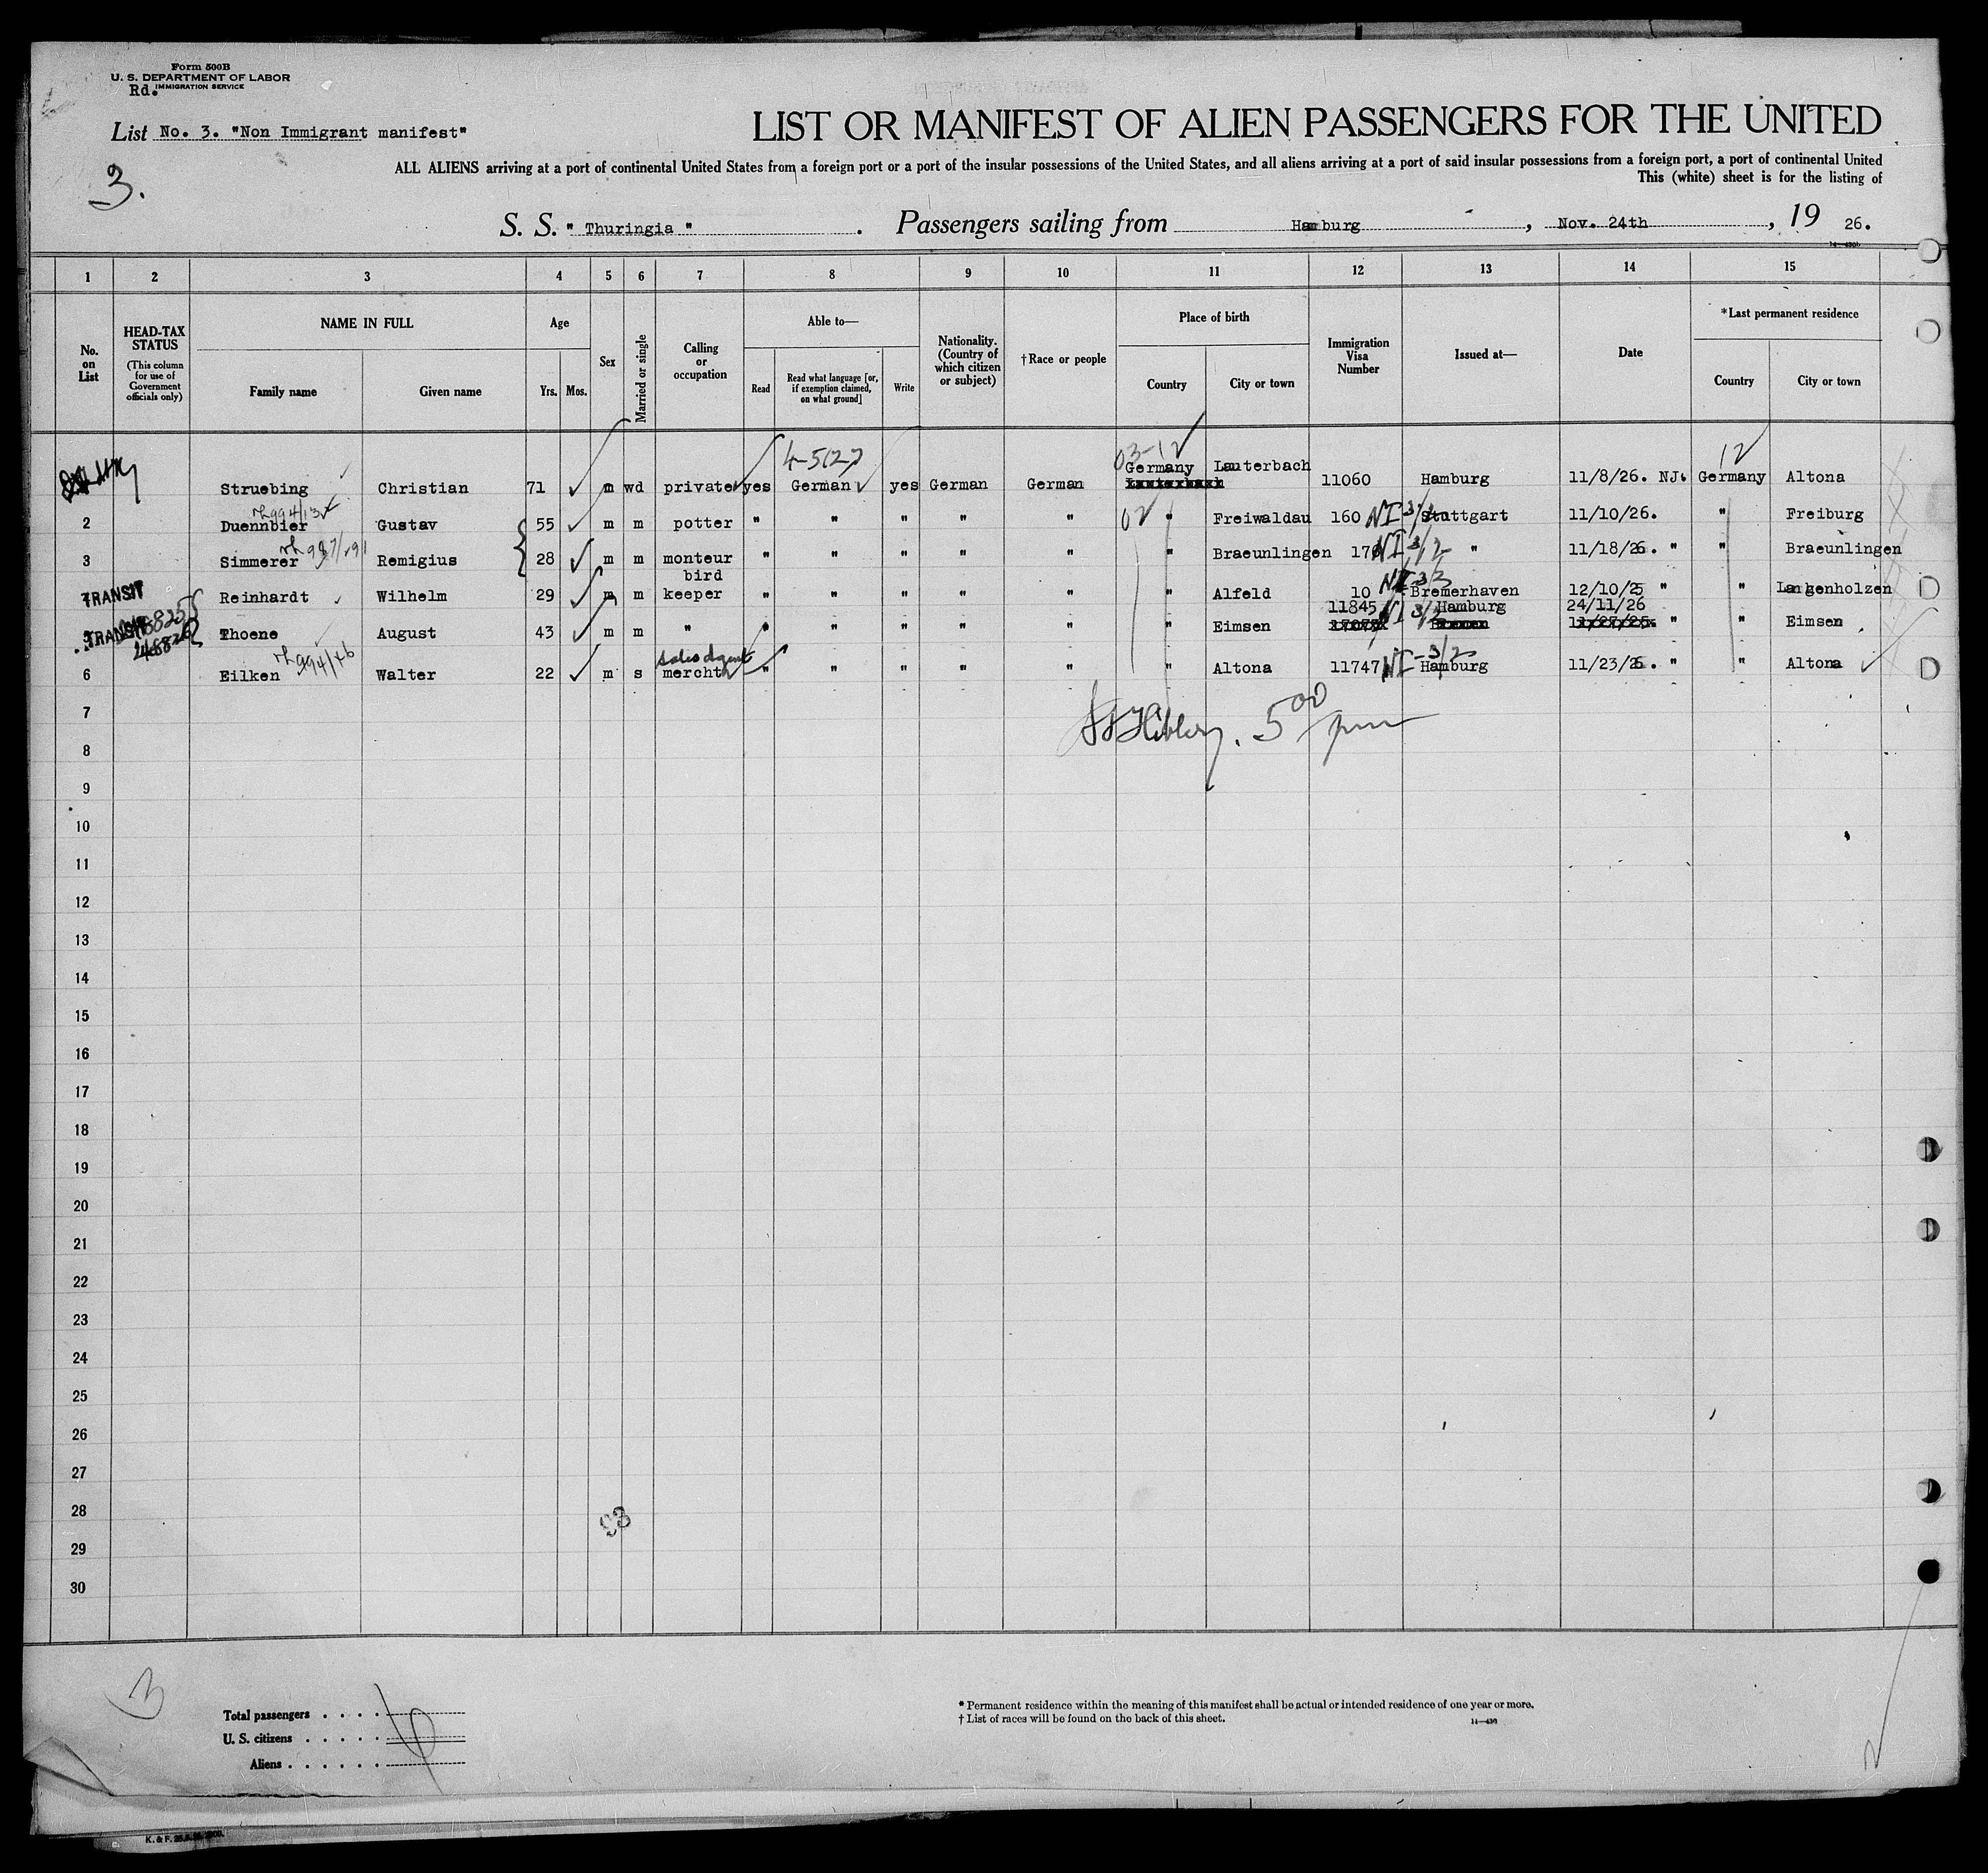 Form 500B
U. S. DEPARTMENT OF LABOR
Rd. IMMIGRATION SERVICE
List No. 3. "Non Immigrant manifest"
3.
LIST OR MANIFEST OF ALIEN PASSENGERS FOR THE UNITED
ALL ALIENS arriving at a port of continental United States from a foreign port or a port of the insular possessions of the United States, and all aliens arriving at a port of said insular possessions from a foreign port, a port of continental United
This (white) sheet is for the listing of
S. S. " Thuringia " . Passengers sailing from Hamburg , Nov. 24th , 19 26.
1 2 3 4 5 6 7 8 9 10 11 12 13 14 15
No. on List
HEAD-TAX STATUS (This column for use of Government officials only)
NAME IN FULL Family name Given name
Age Yrs. Mos.
Sex
Married or single
Calling or occupation
Able to— Read Read what language [or, if exemption claimed, on what ground] Write
Nationality. (Country of which citizen or subject)
†Race or people
Place of birth Country City or town
Immigration Visa Number
Issued at—
Date
*Last permanent residence Country City or town
4-5(27) 03-12 12
Struebing Christian 71 m wd private yes German yes German German Germany Lauterbach 11060 Hamburg 11/8/26. NJ. Germany Altona
2 Duennbier Gustav 55 m m potter " " " " " 02 " Freiwaldau 160 NI 3/2 Stuttgart 11/10/26. " Freiburg
3 Simmerer Remigius 28 m m monteur " " " " " " Braeunlingen 176 NI 3/2 " 11/18/26. " " Braeunlingen
TRANSIT Reinhardt Wilhelm 29 m m bird keeper " " " " " " Alfeld 10 NI 3/2 Bremerhaven 12/10/25 " " Langenholzen
TRANSIT Thoene August 43 m m " " " " " " " Eimsen 11845 NI 3/2 Hamburg 24/11/26 " " Eimsen
6 Eilken Walter 22 m s sales agent mercht " " " " " " Altona 11747 NI-3/2 Hamburg 11/23/26. " " Altona
7
5 00 pm
8
9
10
11
12
13
14
15
16
17
18
19
20
21
22
23
24
25
26
27
28
29
30
3
Total passengers . . . .
U. S. citizens . . . . .
Aliens . . . . . .
* Permanent residence within the meaning of this manifest shall be actual or intended residence of one year or more.
† List of races will be found on the back of this sheet.